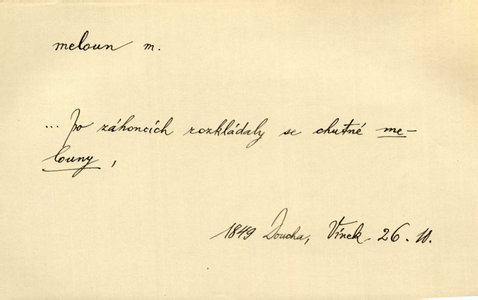 meloun m.
... po záhoncích rozkládaly se chutné me-
louny,
1849 Doucha, Vínek 26. II.